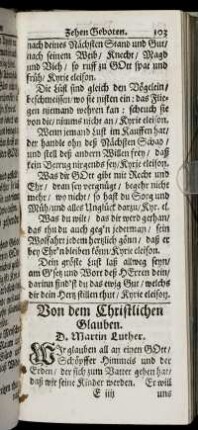 Zehen Geboten. 103
nach deines Nächsten Stand und Gut/
nach seinem Weib/ Knecht/ Magd
und Vieh/ so ruff zu GOtt spat und
früh/ Kyrie eleison.
Die Lüst sind gleich den Vögelein/
beschmeissen/ wo sie nisten ein: das Flie-
gen niemand wehren kan: scheuch sie
von dir/ nimms nicht an/ Kyrie eleison.
Wenn jemand Lust im Kauffen hat/
der handle ohn deß Nächsten Schad/
und stell deß andern Willen frey/ daß
kein Betrug nirgends sey/ Kyrie eleison.
Was dir GOtt gibt mit Recht und
Ehr/ dran sey vergnügt/ begehr nicht
mehr/ wo nicht/ so hast du Sorg und
Müh/ und alles Unglück darzu/ Kyr. el.
Was du wilt/ das dir werd gethan/
das thu du auch geg'n jederman/ sein
Wolfahrt jedem hertzlich gönn/ daß er
bey Ehr'n bleiben könn/ Kyrie eleison.
Dein gröste Lust laß allweg seyn/
am G'setz und Wort deß HErren dein/
darinn find'st du das ewig Gut/ welchs
dir dein Hertz stillen thut/ Kyrie eleison.
Von dem Christlichen
Glauben.
D. Martin Luther.
WIr glauben all an einen GOtt/
Schöpffer Himmels und der
Erden/ der sich zum Vatter geben hat/
daß wir seine Kinder werden. Er will
E iiij uns